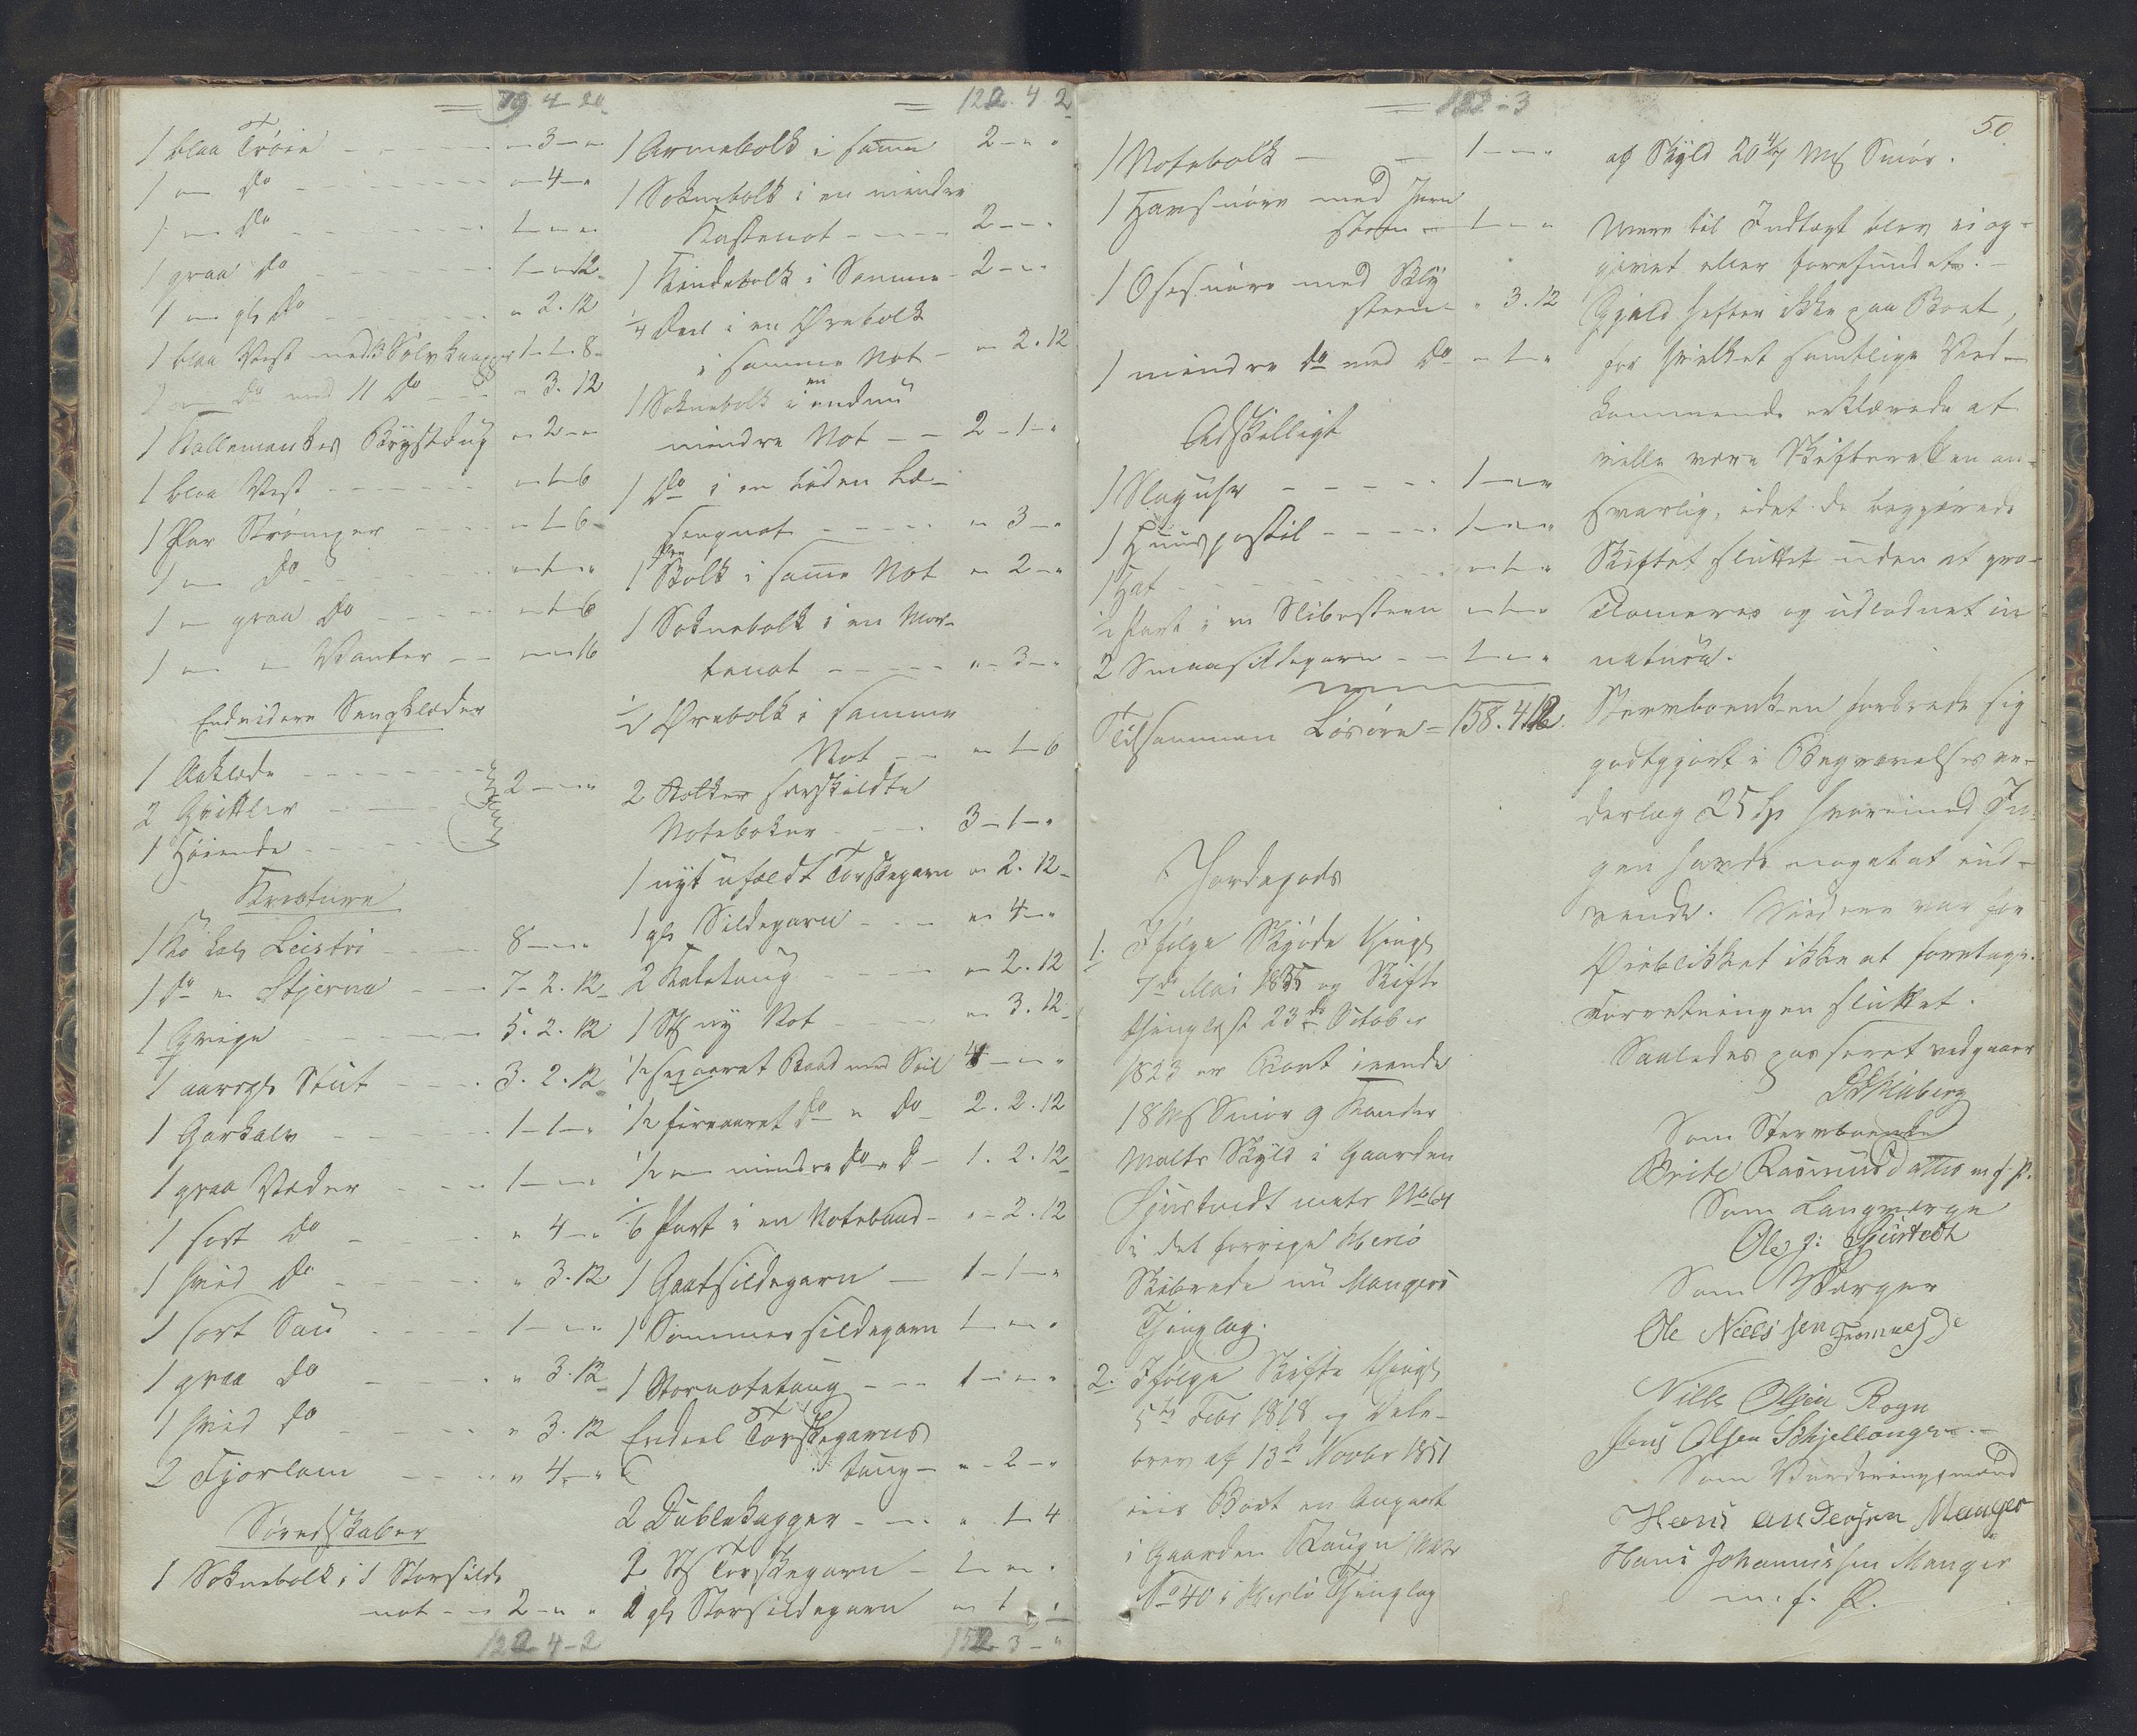 79. 4 20
1 blaa Trøie - 3 -
1 - do - 4 -
1 - do 1 - -
1 graa do 1 - 12
1 - gl do " 2. 12
1 blaa Vest med Sølvknapper 1 - 1 - 8
2 - do med 11 do - 3. 12
1 Kallemankes Brystdug - 2 -
1 blaa Vest - 1 - 6
1 Par Strømper - 1 - 6
1 - do - 1 -
1 - graa do - 1 - 6
1 - - Vanter - - 16
Endvidere Sengklæder
1 Aaklæde
2 Hvittler 2 - -
1 Høiende
Kreature
1 Ko kal Leistri 8 - -
1 do - Stjerna 7. 2. 12
1 Qvige 5. 2. 12
1 aarsgl Stut 3. 2. 12
1 Gjorkalv 1 - 1 -
1 graa Væder 1 - -
1 sort do " 4 -
1 hvid do " 3. 12
1 sort Sau 1 - -
1 graa do " 3. 12
1 hvid do " 3. 12
2 Fjorlam " 4 -
Søredskaber
1 Soknebolk i 1 Storsilde
not - 2 - -
122 - 4 - 2
122. 4 2
1 Armebolk i samme 2 - -
1 Soknebolk i en mindre
Kastenot 2 - -
1 Kindebolk i Samme 2 - -
1/4 Deel i en Ørebolk
i samme Not - 2. 12
1 Soknebolk i en endnu
mindre Not - - 2 - 1 -
1 do i en liden Læ-
sengnot - 3 -
1 Bolk i samme Not - 2 -
1 Soknebolk i en Mor-
tenot - 3 -
1/2 Ørebolk i samme
Not - 1 - 6
2 Bolker forskildte
Notebolker 3 - 1 -
1 nyt ufældt Torskegarn - 2. 12
1 gl Sildegarn - 4 -
2 Kaletoug - 2. 12
1 St ny Not - 3. 12
1/2 sexaaret Baad med Seil 4 - -
1/2 fireaaret do - do 2. 2. 12
1/2 - mindre do - do 1. 2. 12
1/6 Part i en Notebaad - 2. 12
1 Gaatsildegarn 1 - 1 -
1 Sommersildegarn 1 - -
1 Stornotetoug 1 - -
Endeel Torskegarns
toug - 2 -
2 Dublekagger " 1 - 4
2 St Torskegarn 1 - -
2 gl Storsildegarn - 1 -
152 - 3 -
152 - 3
1 Notebolk 1 - -
1 Havsnøre med Jern
steen 1 - -
1 Osesnøre med Bly
steen " 3. 12
1 mindre do med do - 1 -
Adskilligt
1 Slaguhr 1 - -
1 Huuspostil 1 - -
1 Hat - 1 -
1/2 Part i en Slibesteen - 1 -
2 Smaasildegarn 1 - -
Tilsammen Løsøre = 158. 4 12
Jordegods
1. Ifølge Skjøde thingl
7de Mai 1855 og Skifte
thinglyst 23de October
1823 er Boet eiende
18 Mk Smør 9 Kander
Malts Skyld i Gaarden
Hjertvedt matr No 64
i det forrige Herlø
Skibrede nu Mangers
Thinglag.
2. Ifølge Skifte thingl
5te Febr 1818 og Dele-
brev af 13de Novbr 1851
eier Boet en Anpart
i Gaarden Raugn Matr
No 40 i Herlø Thinglag
50
af Skyld 20 4/7 Mk Smør.
Mere til Indtægt blev ei op-
givet eller forefundet. -
Gjeld hefter ikke paa Boet,
for hvilket samtlige Ved-
kommende erklærede at
ville være Skifteretten an-
svarlig, idet de begjærede
Skiftet sluttet uden at pro-
clameres og udlodnet in
natura.
Stervboenken forberedte sig
godtgjort i Begravelses ve-
derlag 25 Sp hvorimod In-
gen havde noget at ind-
vende. Videre var for
Øieblikket ikke at foretage.
Forretningen sluttet.
Saaledes passeret vedgaaer
Som Stervboenke
Brite Rasmusdatter m. f. P.
Som Laugværge
Ole J: Hjertedt
Som Værger
Ole Nielssen Fromnesse
Nille Olsen Rogn
Jens Olsen Schjellanger
Som Vurderingsmænd
Hans Andersen Manger
Hans Johannessen Manger
m. f. P.